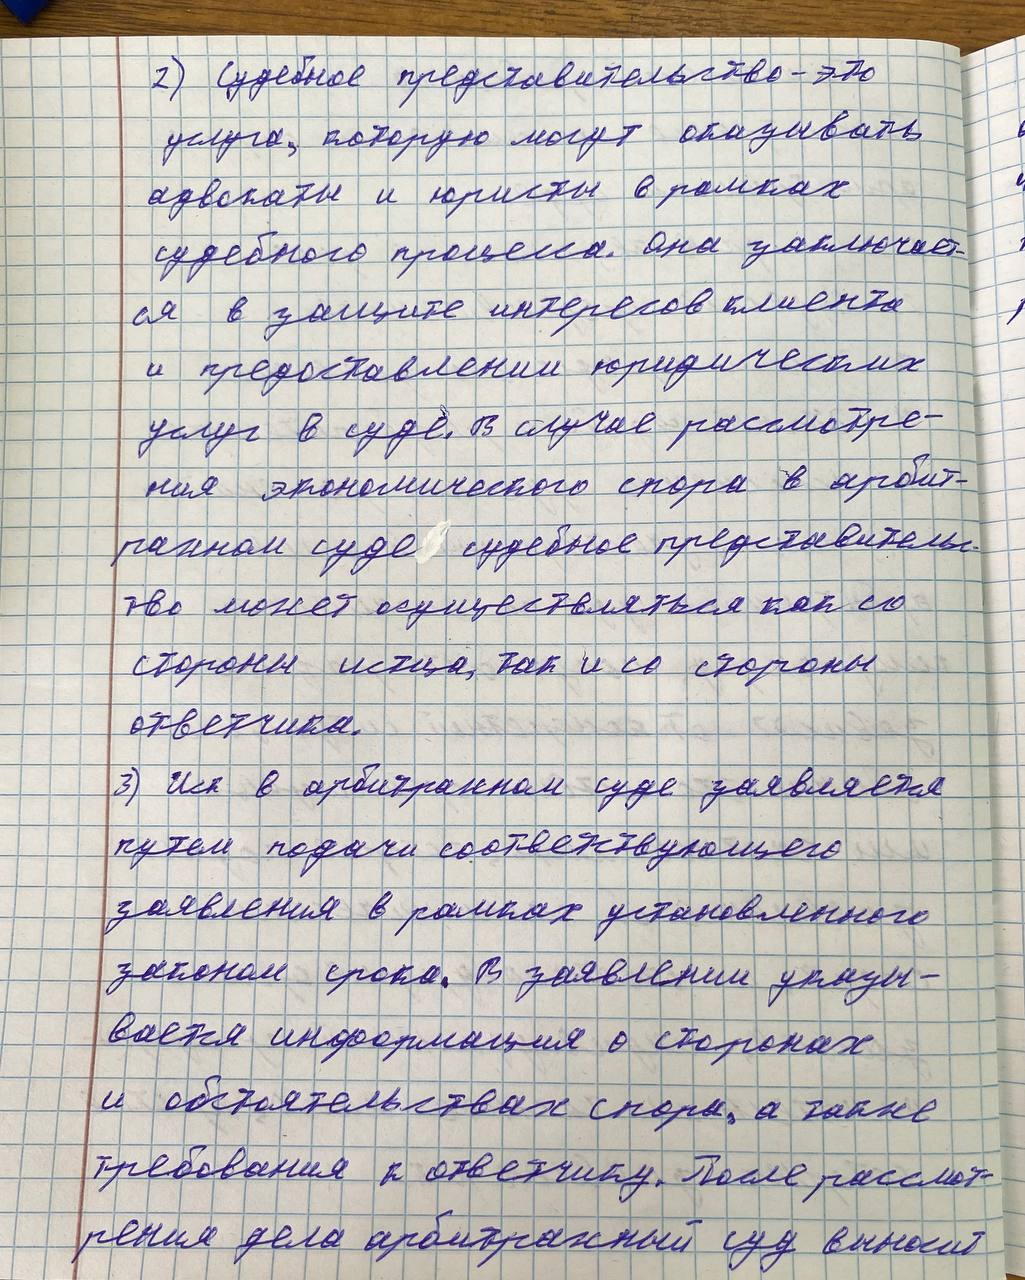 2) Судебное представительство - это
услуга, которую могут оказывать
адвокаты и юристы в рамках
судебного процесса. Она заключает-
ся в защите интересов клиента
и предоставлении юридических
услуг в суде. В случае рассмотре-
ния экономического спора в арбит-
ражном суде судебное представительс-
тво может осуществляться как со
стороны истца, так и со стороны
ответчика.
3) Иск в арбитражном суде заявляется
путем подачи соответствующего
заявления в рамках установленного
законом срока. В заявлении указы-
вается информация о сторонах
и обстоятельствах спора, а также
требования к ответчику. После рассмот-
рения дела арбитражный суд выносит